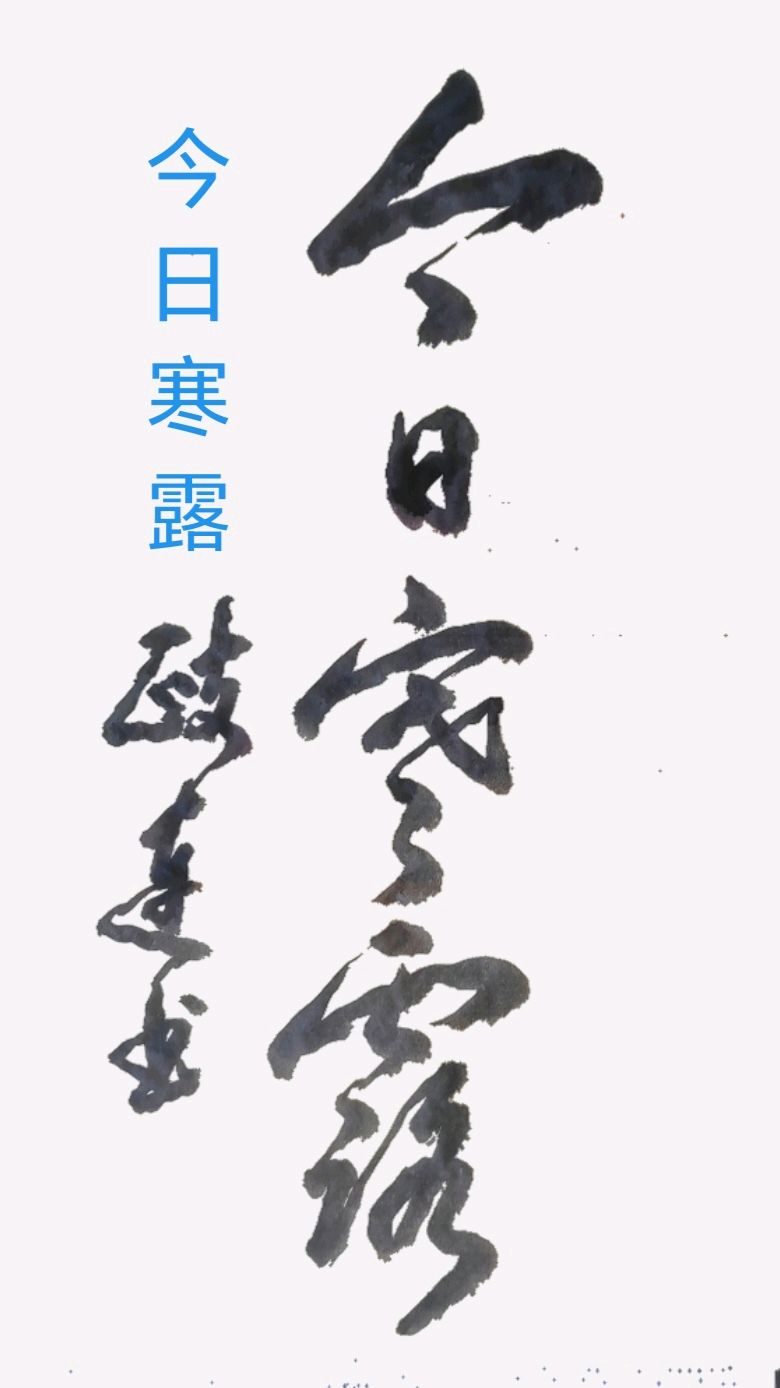 今日寒露
今日寒露